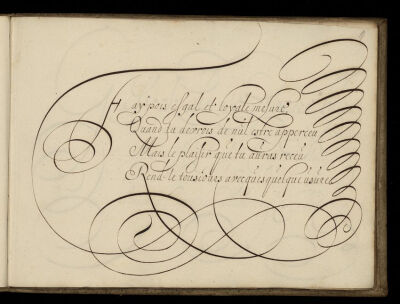 Fay pois esgal et loyale mesure,
Quand tu devrois de nul estre apperceu
Mais le plaisir que tu auras receu
Rend le tousiours avecques quelque usure.